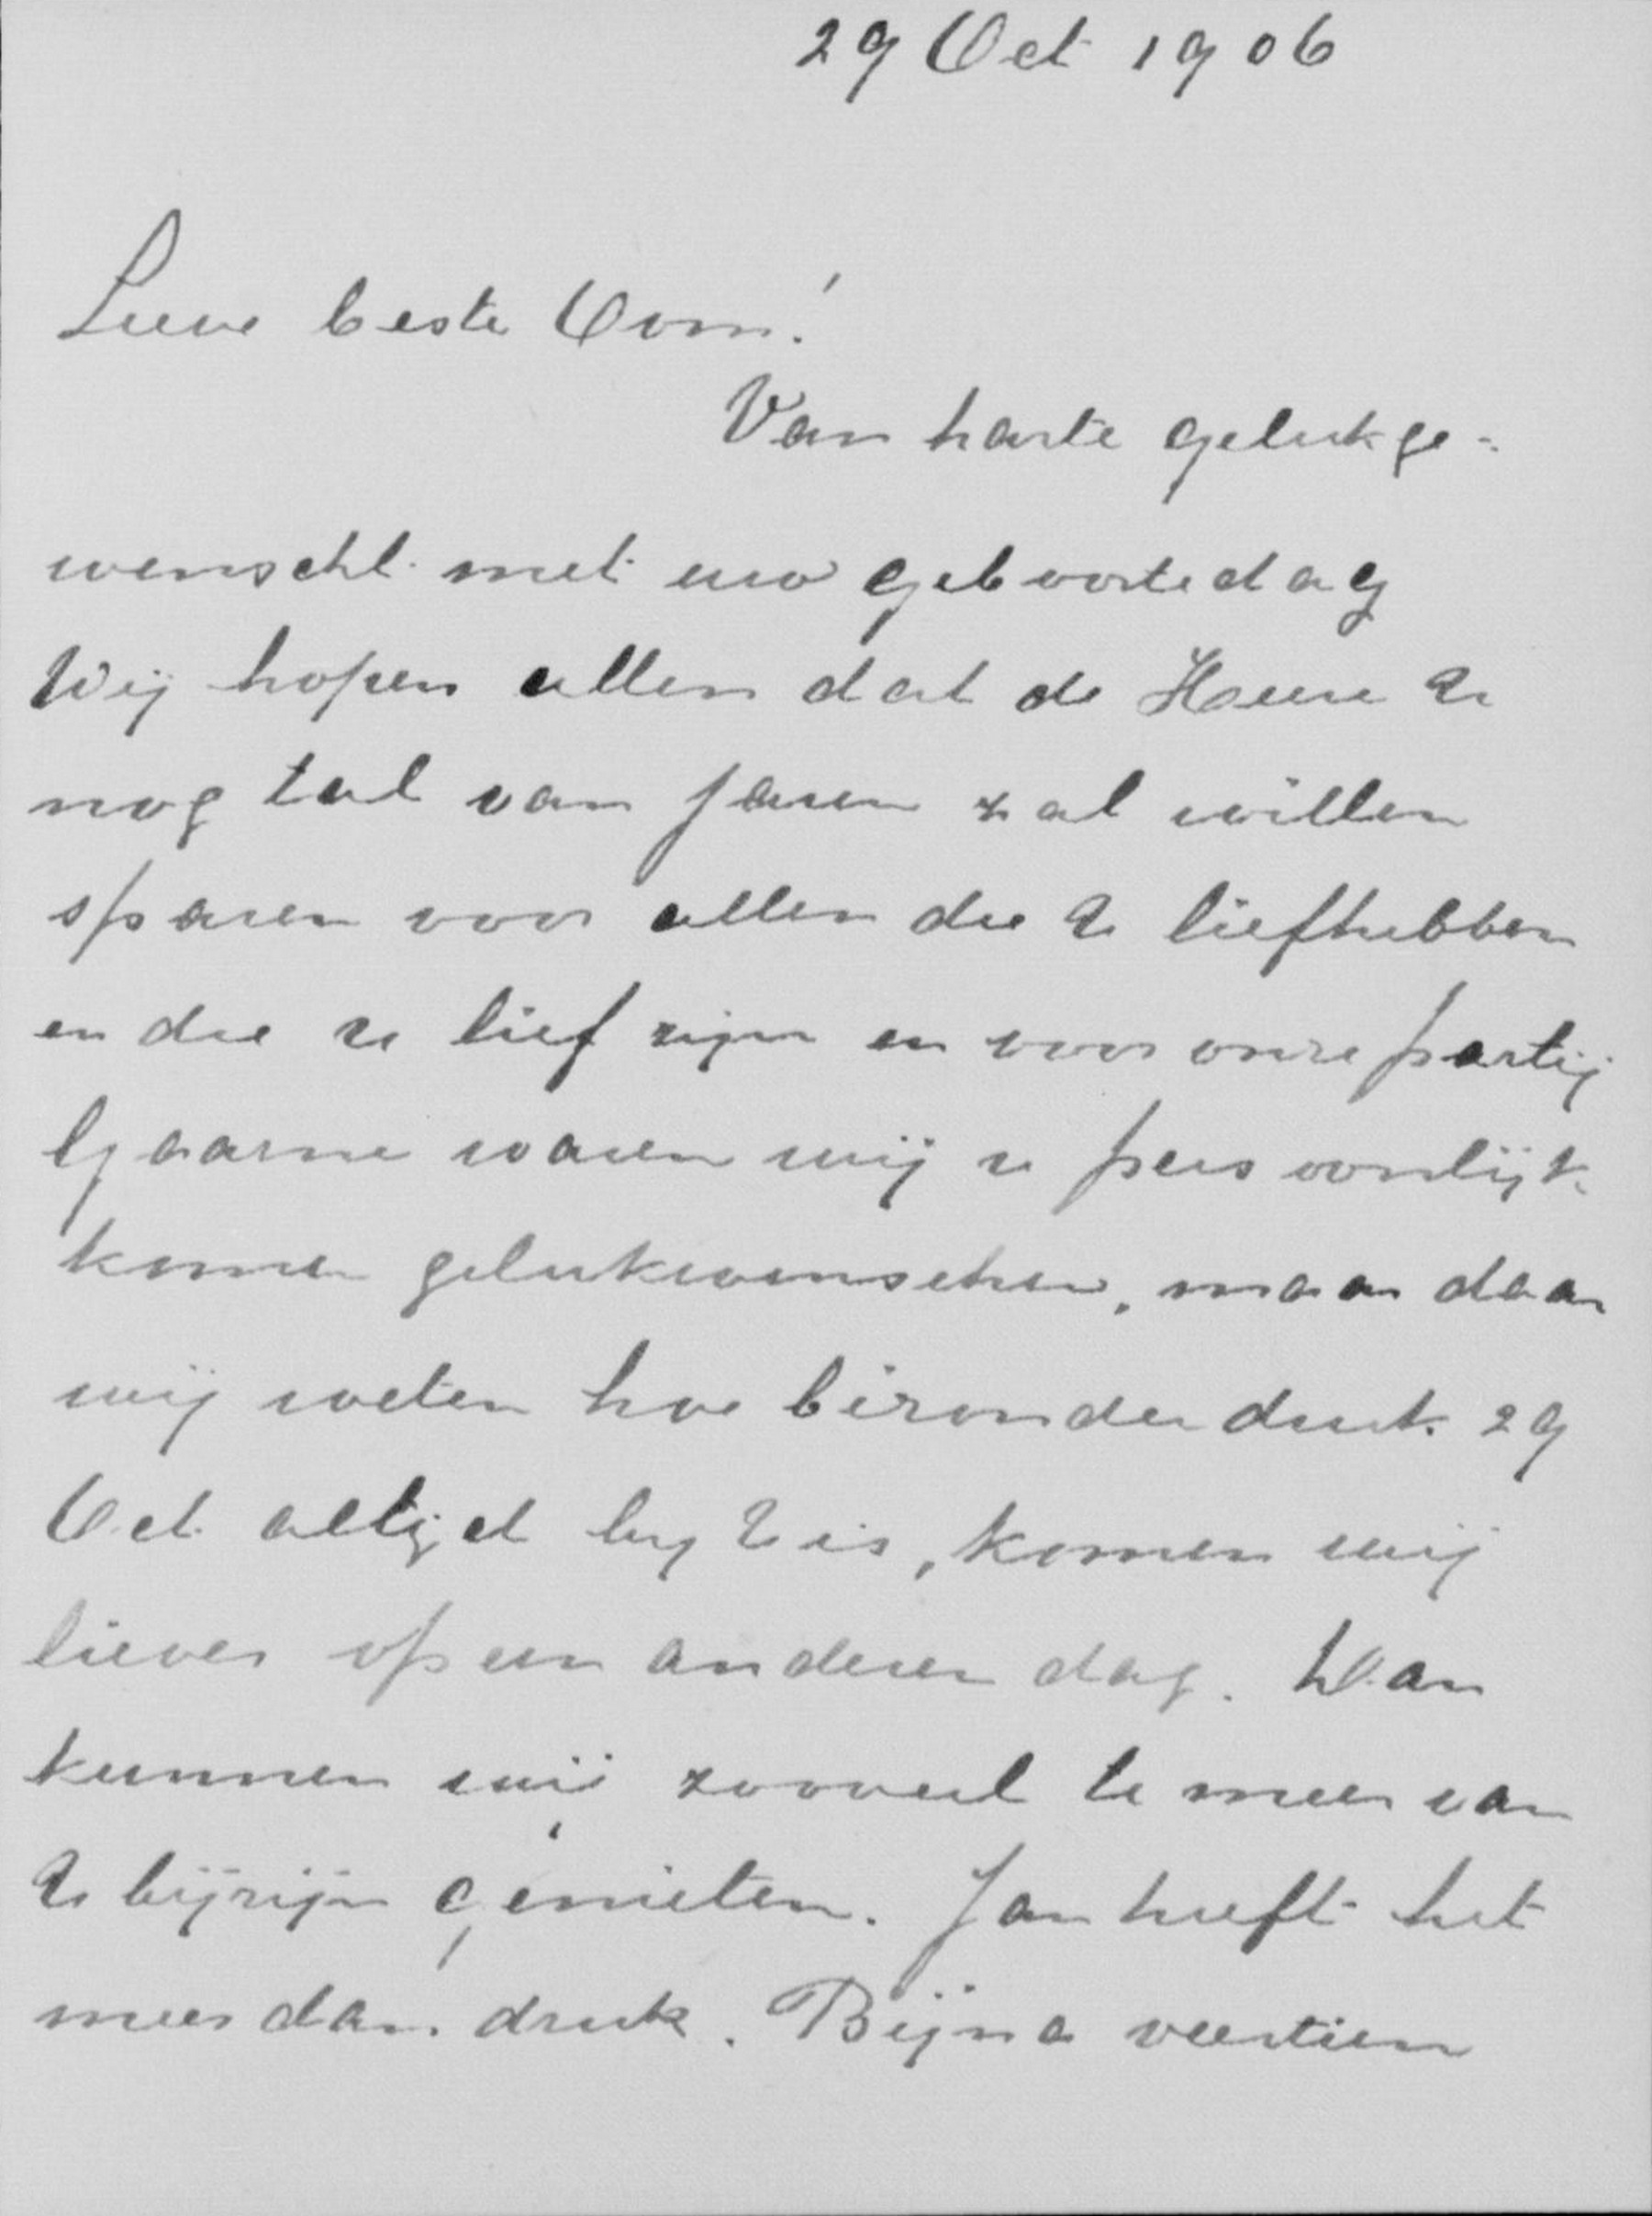 29 Oct 1906
Lieve beste Oom!
Van harte gelukge-
wenscht met uw geboortedag
Wij hopen allen dat de Heere U
nog tal van jaren zal willen
sparen voor allen die U liefhebben
en die U lief zijn en voor onze partij
Gaarne waren wij U persoonlijk
komen gelukwenschen, maar daar
wij weten hoe bizonder druk 29
Oct altijd bij U is, komen wij
liever op een anderen dag. Dan
kunnen wij zooveel te meer van
U bijzijn genieten. Jan heeft het
meer dan druk. Bijna veertien